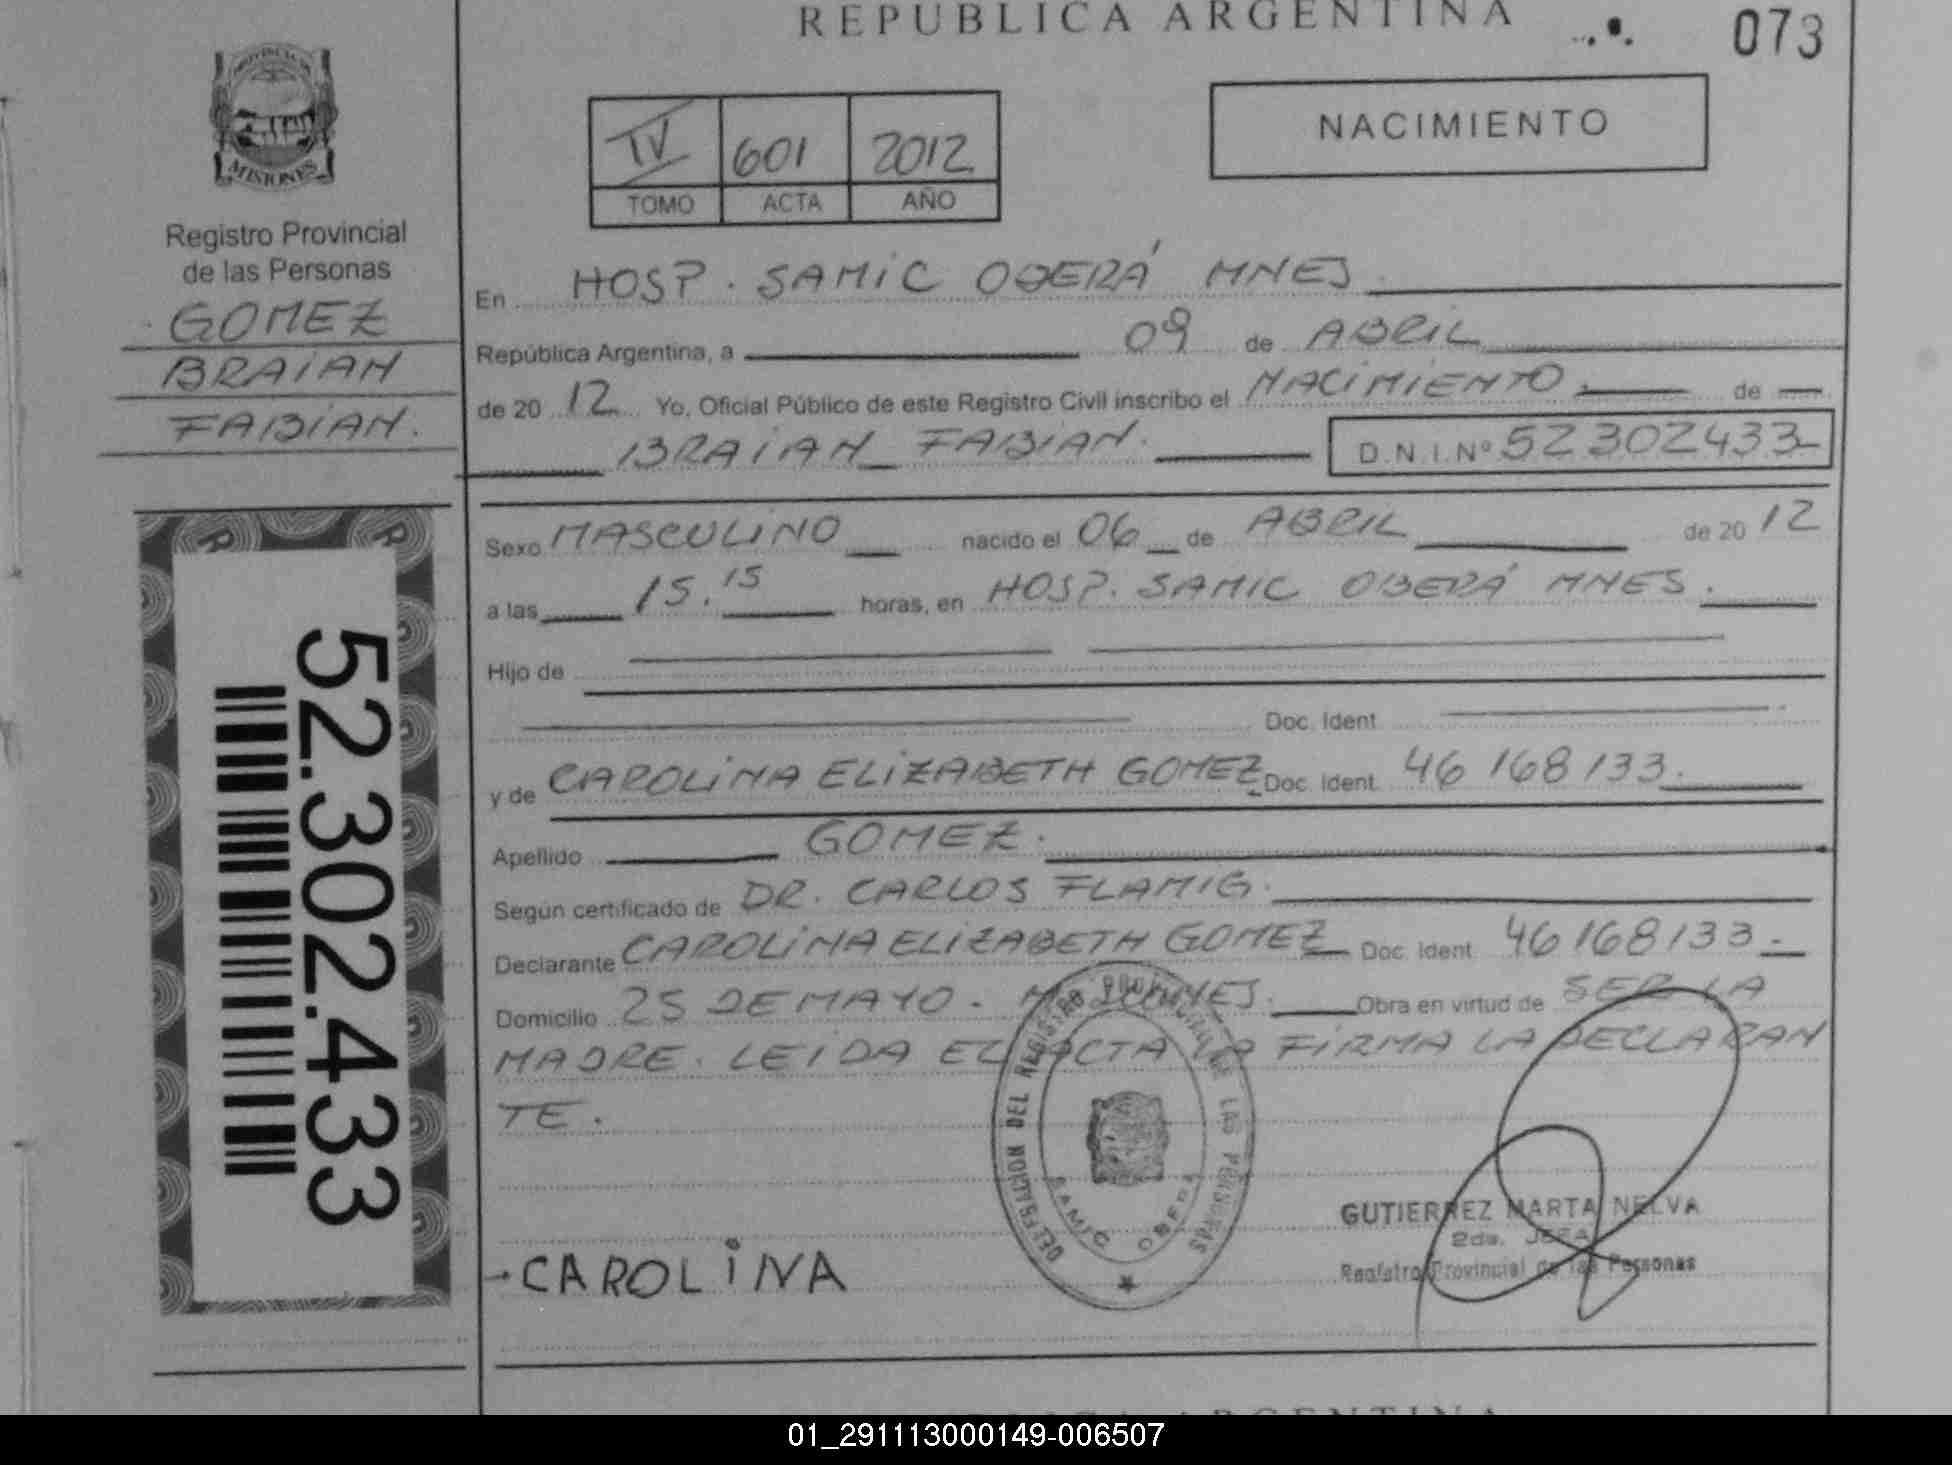 REPUBLICA ARGENTINA
073
PROVINCIA DE
MISIONES
Registro Provincial
de las Personas
GOMEZ
BRAIAN
FABIAN.
52.302.433
IV 601 2012
TOMO ACTA AÑO
NACIMIENTO
En HOSP. SAMIC OBERÁ MNES.
República Argentina, a 09 de ABRIL
de 20 12 Yo, Oficial Público de este Registro Civil inscribo el NACIMIENTO. de
BRAIAN FABIAN. D.N.I.Nº 52302433
Sexo MASCULINO nacido el 06 de ABRIL de 20 12
a las 15.15 horas, en HOSP. SAMIC OBERÁ MNES.
Hijo de
Doc. Ident.
y de CAROLINA ELIZABETH GOMEZ Doc. Ident. 46 168 133.
Apellido GOMEZ.
Según certificado de DR. CARLOS FLAMIG.
Declarante CAROLINA ELIZABETH GOMEZ Doc. Ident. 46168133.
Domicilio 25 DE MAYO. MISIONES. Obra en virtud de SER LA
MADRE. LEIDA EL ACTA LA FIRMA LA DECLARAN
TE.
DELEGACION DEL REGISTRO PROVINCIAL DE LAS PERSONAS
SAMIC OBERA
CAROLINA
GUTIERREZ MARTA NELVA
2da. JEFA
Registro Provincial de las Personas
01_291113000149-006507